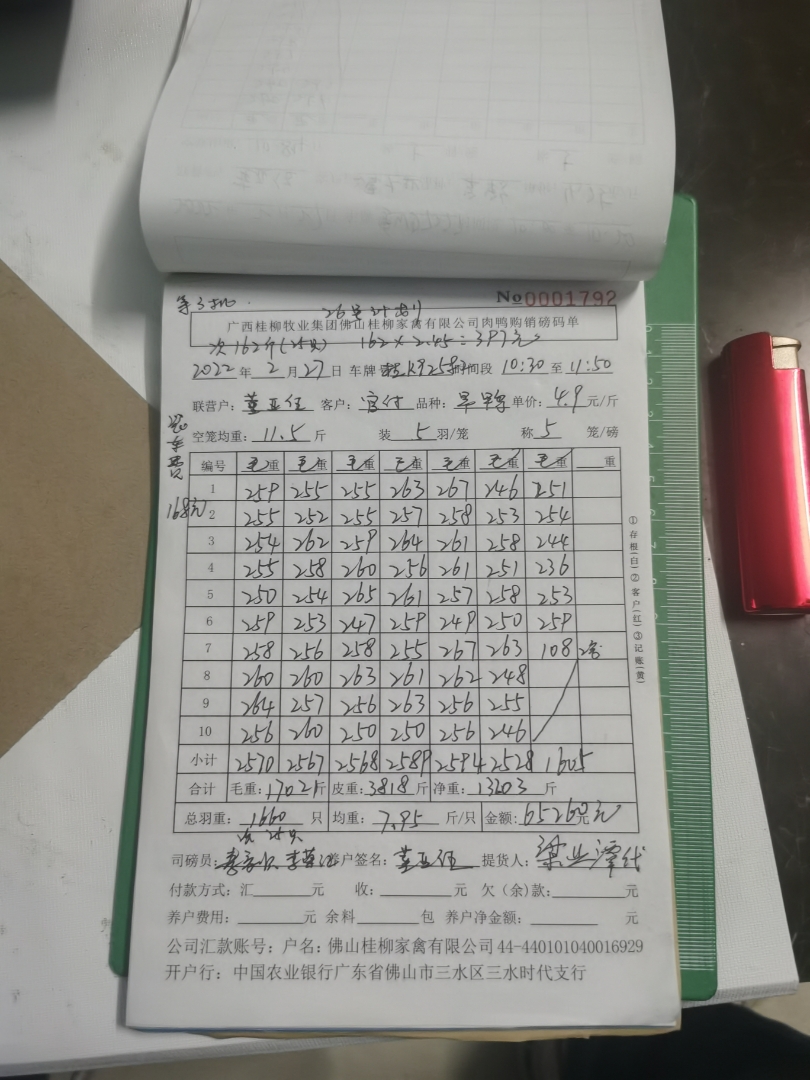 等3批
26号计划
No 0001792
广西桂柳牧业集团佛山桂柳家禽有限公司肉鸭购销磅码单
次162斤(25只) 162×2.45=397元
2022年2月27日 车牌 K9258 时间段 10:30至11:50
联营户:董亚伍 客户:官付 品种:旱鸭 单价:4.9元/斤
空笼均重:11.5斤 装5羽/笼 称5笼/磅
车费
168元
编号 毛重 毛重 毛重 毛重 毛重 毛重 毛重 重
1 259 255 255 263 267 246 251
2 255 252 255 257 258 253 254
3 254 262 259 264 261 258 244
4 255 258 260 256 261 251 236
5 250 254 265 261 257 258 253
6 259 253 247 259 249 250 259
7 258 256 258 255 267 263 108 2笼
8 260 260 263 261 262 248
9 264 257 256 263 256 255
10 256 260 250 250 256 246
小计 2570 2567 2568 2589 2594 2528 1605
合计 毛重:17021斤 皮重:3818斤 净重:13203斤
总羽重:1660只 均重:7.95斤/只 金额:65260元
次25只
司磅员: 养户签名:董亚伍 提货人:梁业潭代
付款方式:汇 元 收: 元 欠(余)款: 元
养户费用: 元 余料 包 养户净金额: 元
公司汇款账号:户名:佛山桂柳家禽有限公司44-440101040016929
开户行:中国农业银行广东省佛山市三水区三水时代支行
①存根(白)②客户(红)③记账(黄)